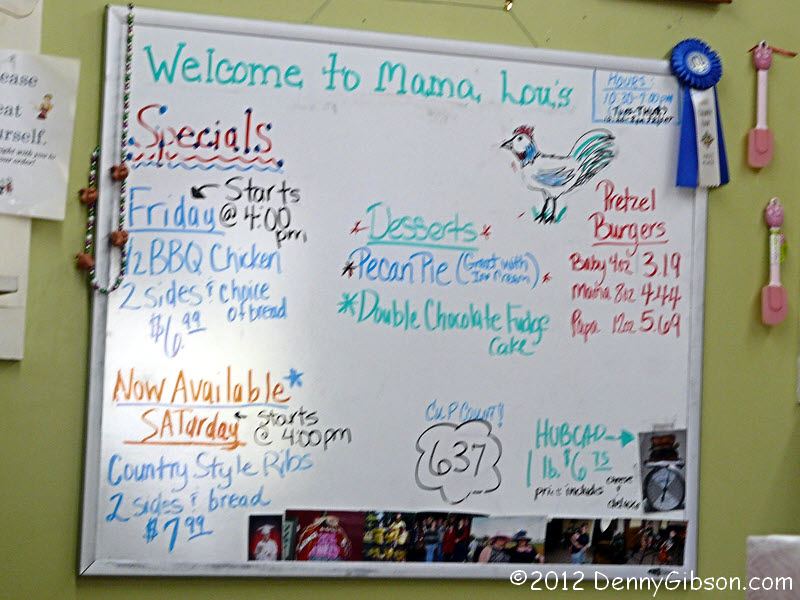 Welcome to Mama Lou's
Hours:
10:30-7:00pm
Specials
Friday
Starts
@ 4:00
pm
1/2 BBQ Chicken
2 sides & choice
of bread
$6.99
Now Available
SATurday
Starts
@ 4:00pm
Country Style Ribs
2 sides & bread
$7.99
Desserts
Pecan Pie (Great with
Ice Cream)
Double Chocolate Fudge
Cake
Pretzel
Burgers
Baby 4oz 3.19
Mama 8oz 4.44
Papa 12oz 5.69
CUP COUNT!
637
HUBCAP
1 lb. $6.75
price includes cheese &
deluxe
ease
eat
urself.
©2012 DennyGibson.com